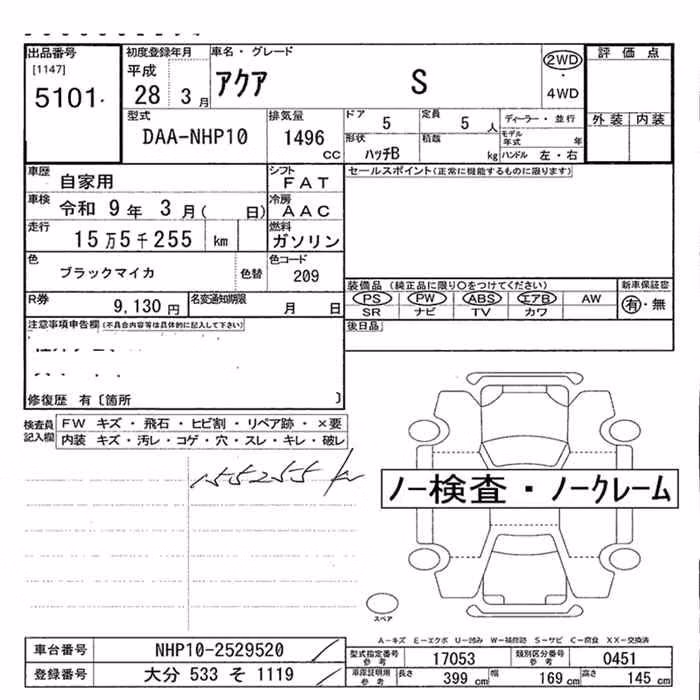 出品番号 初度登録年月 車名・グレード 2WD 評価点
[1147] 平成 アクア S ・
5101 28 3月 4WD
型式 排気量 ドア 5 定員 5人 ディーラー・並行 外装 内装
DAA-NHP10 1496 cc 形状 ハッチB 積載 kg モデル年式 年
ハンドル 左・右
車歴 自家用 シフト FAT セールスポイント(正常に機能するものに限ります)
車検 令和 9年 3月( 日) 冷房 AAC
走行 15万5千255 km 燃料 ガソリン
色 ブラックマイカ 色替 色コード 209
装備品 (純正品に限り○をつけてください) 新車保証書
R券 9,130円 名変通知期限 月 日 PS PW ABS エアB AW 有・無
SR ナビ TV カワ
注意事項申告欄 (不具合内容等は具体的に記入して下さい) 後日品
修復歴 有〔箇所 〕
検査員記入欄 FW キズ・飛石・ヒビ割・リペア跡・×要
内装 キズ・汚レ・コゲ・穴・スレ・キレ・破レ
155255 km
ノー検査・ノークレーム
スペア
A-キズ E-エクボ U-凹み W-補修跡 S-サビ C-腐食 XX-交換済
車台番号 NHP10-2529520 型式指定番号 参考 17053 類別区分番号 参考 0451
登録番号 大分 533 そ 1119 車庫証明用 参考 長さ 399 cm 幅 169 cm 高さ 145 cm